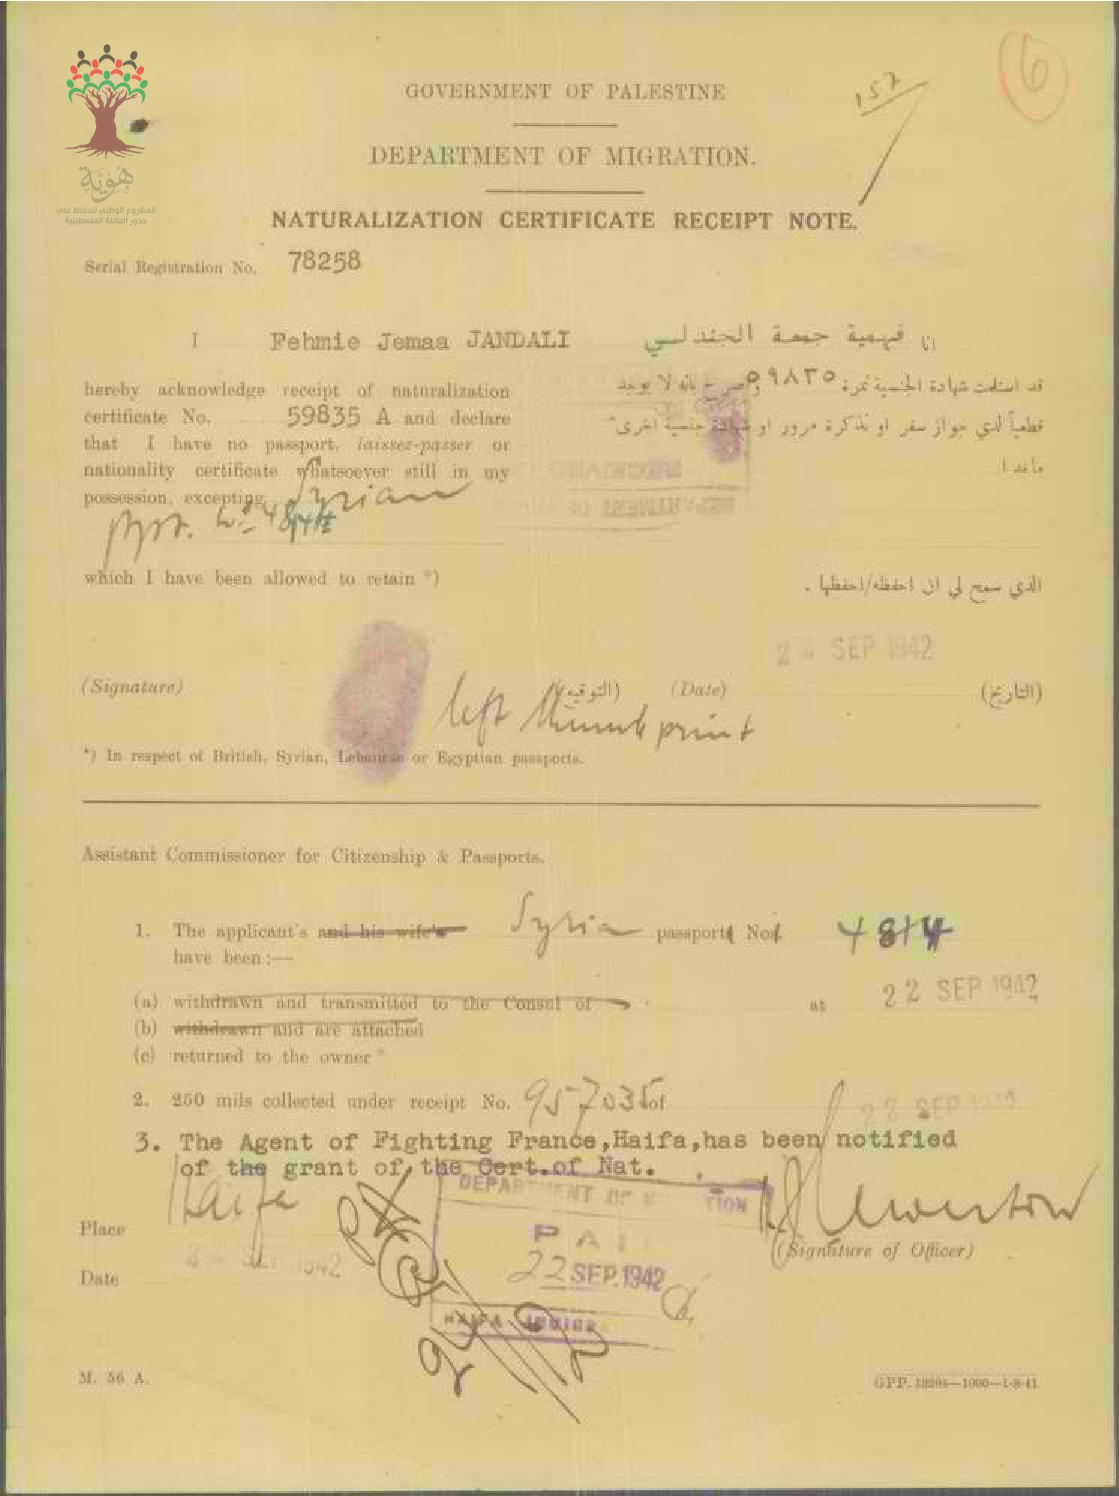 هُوِيَّة
المشروع الوطني للحفاظ على
جذور العائلة الفلسطينية
6
157
GOVERNMENT OF PALESTINE
DEPARTMENT OF MIGRATION.
NATURALIZATION CERTIFICATE RECEIPT NOTE.
Serial Registration No. 78258
I Fehmie Jemaa JANDALI
انا فهمية جمعة الجندلي
hereby acknowledge receipt of naturalization
certificate No. 59835 A and declare
that I have no passport, laissez-passer or
nationality certificate whatsoever still in my
possession, excepting Syrian
ppt. No 4814
قد استلمت شهادة الجنسية نمرة ٥٩٨٣٥ واصرح بانه لا يوجد
قطعياً لدي جواز سفر او تذكرة مرور او شهادة جنسية اخرى
ما عدا
which I have been allowed to retain *)
الذي سمح لي ان احفظه/احفظها .
22 SEP 1942
(Signature) left thumb print (التوقيع) (Date) (التاريخ)
*) In respect of British, Syrian, Lebanese or Egyptian passports.
Assistant Commissioner for Citizenship & Passports.
1. The applicant's and his wife's Syria passport No. 4814
have been :—
(a) withdrawn and transmitted to the Consul of at 22 SEP 1942
(b) withdrawn and are attached
(c) returned to the owner *
2. 250 mils collected under receipt No. 957035 of 22 SEP 1942
3. The Agent of Fighting France,Haifa,has been notified
of the grant of the Cert.of Nat.
DEPARTMENT OF
TION
PAI
22 SEP.1942
HAIFA
Place Haifa
(Signature of Officer)
Date 22 SEP 1942
M. 56 A.
GPP. 12284—1000—1-8-41